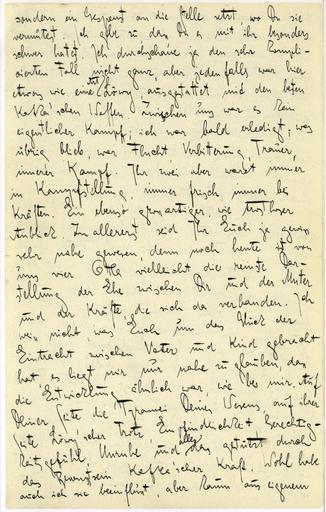 sondern ein Gespenst an die Stelle setzt, wo Du sie
vermutest. Ich gebe zu dass Du es mit ihr besonders
schwer hattest. Ich durchschaue ja den sehr kompli-
cierten Fall nicht ganz, aber jedenfalls war hier
etwas wie eine Art Löwy, ausgestattet mit den besten
Kafka'schen Waffen. Zwischen uns war es kein
eigentlicher Kampf; ich war bald erledigt; was
übrig blieb, war Flucht, Verbitterung, Trauer,
innerer Kampf. Ihr zwei aber waret immer
in Kampfstellung, immer frisch, immer bei
Kräften. Ein ebenso grossartiger, wie trostloser
Anblick. Zu allererst seid Ihr Euch ja gewiss
sehr nahe gewesen, denn noch heute ist von
uns vier Ottla vielleicht die reinste Dar-
stellung der Ehe zwischen Dir und der Mutter
und der Kräfte, die sich da verbanden. Ich
weiss nicht, was Euch um das Glück der
Eintracht zwischen Vater und Kind gebracht
hat, es liegt mir nur nahe zu glauben, dass
die Entwicklung ähnlich war, wie bei mir. Auf
Deiner Seite die Tyrannei Deines Wesens, auf ihrer
Seite Löwy'scher Trotz, Empfindlichkeit, Gerechtig-
keitsgefühl, Unruhe und alles das gestützt durch
das Bewusstsein Kafka'scher Kraft. Wohl habe
auch ich sie beeinflusst, aber kaum aus eigenem